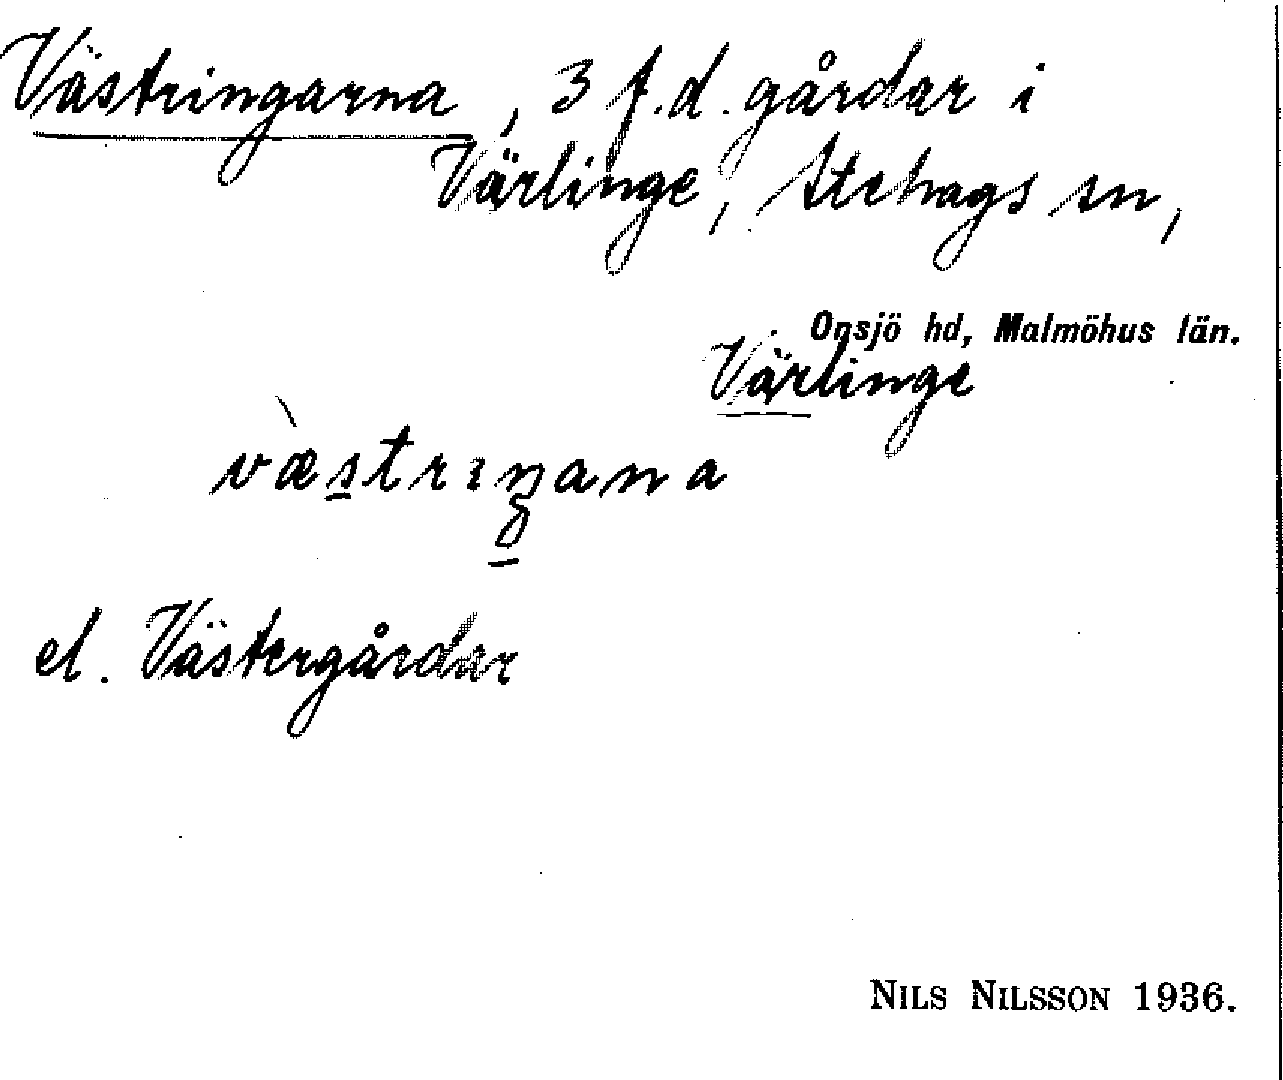 Västringarna, 3 f.d. gårdar i
Värlinge, Stehags sn,
Onsjö hd, Malmöhus län.
Värlinge
væ̀strıŋana
el. Västergårdar
NILS NILSSON 1936.